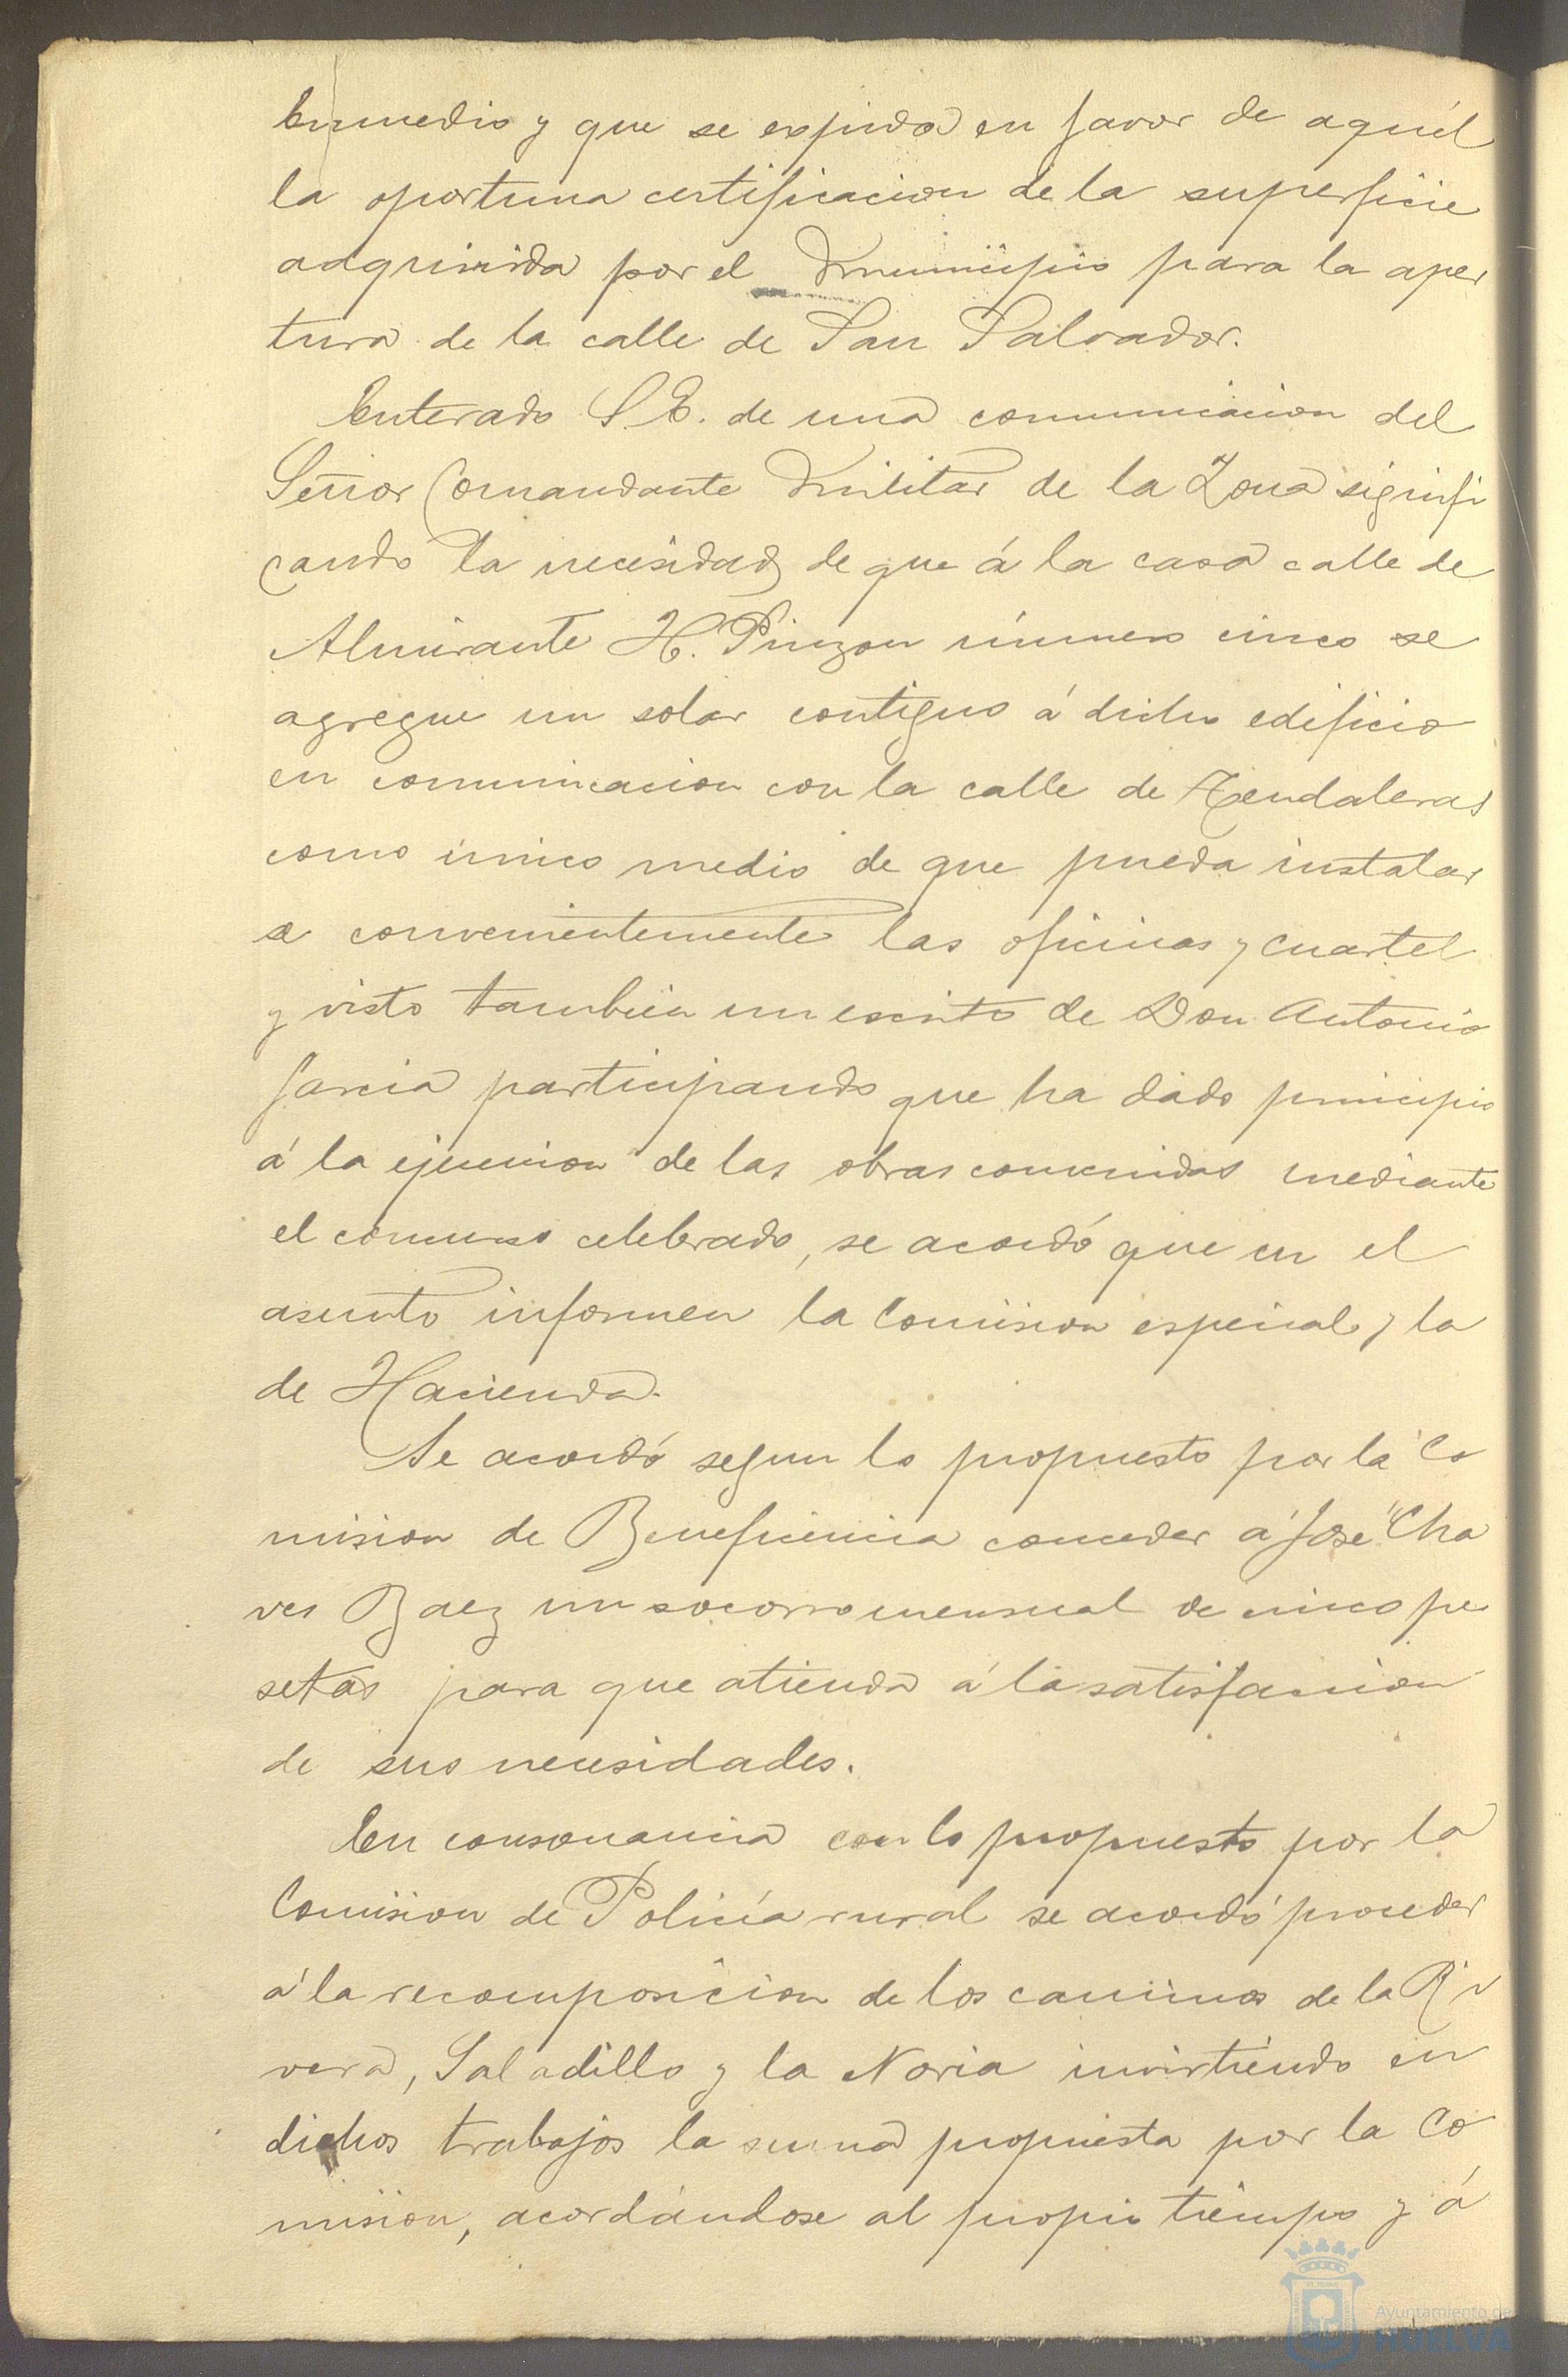 Enmedio y que se expida en favor de aquél
la oportuna certificacion de la superficie
adquirida por el Municipio para la aper
tura de la calle de San Salvador.
Enterado S.E. de una comunicacion del
Señor Comandante Militar de la Zona signifi
cando la necesidad de que á la casa calle de
Almirante H. Pinzon número cinco se
agregue un solar contiguo á dicho edificio
en comunicacion con la calle de Tendaleras
como único medio de que pueda instalar
se convenientemente las oficinas y cuartel
y visto tambien un escrito de Don Antonio
García participando que ha dado principio
á la ejecucion de las obras convenidas mediante
el concurso celebrado, se acordó que en el
asunto informen la Comision especial y la
de Hacienda.
Se acordó segun lo propuesto por la Co
mision de Beneficencia conceder á José Cha
ves Baez un socorro mensual de cinco pe
setas para que atienda á la satisfaccion
de sus necesidades.
En consonancia con lo propuesto por la
Comision de Policía rural se acordó proceder
á la recomposicion de los caminos de la Ri
vera, Saladillo y la Noria invirtiendo en
dichos trabajos la suma propuesta por la Co
mision, acordándose al propio tiempo y á
Ayuntamiento de
HUELVA